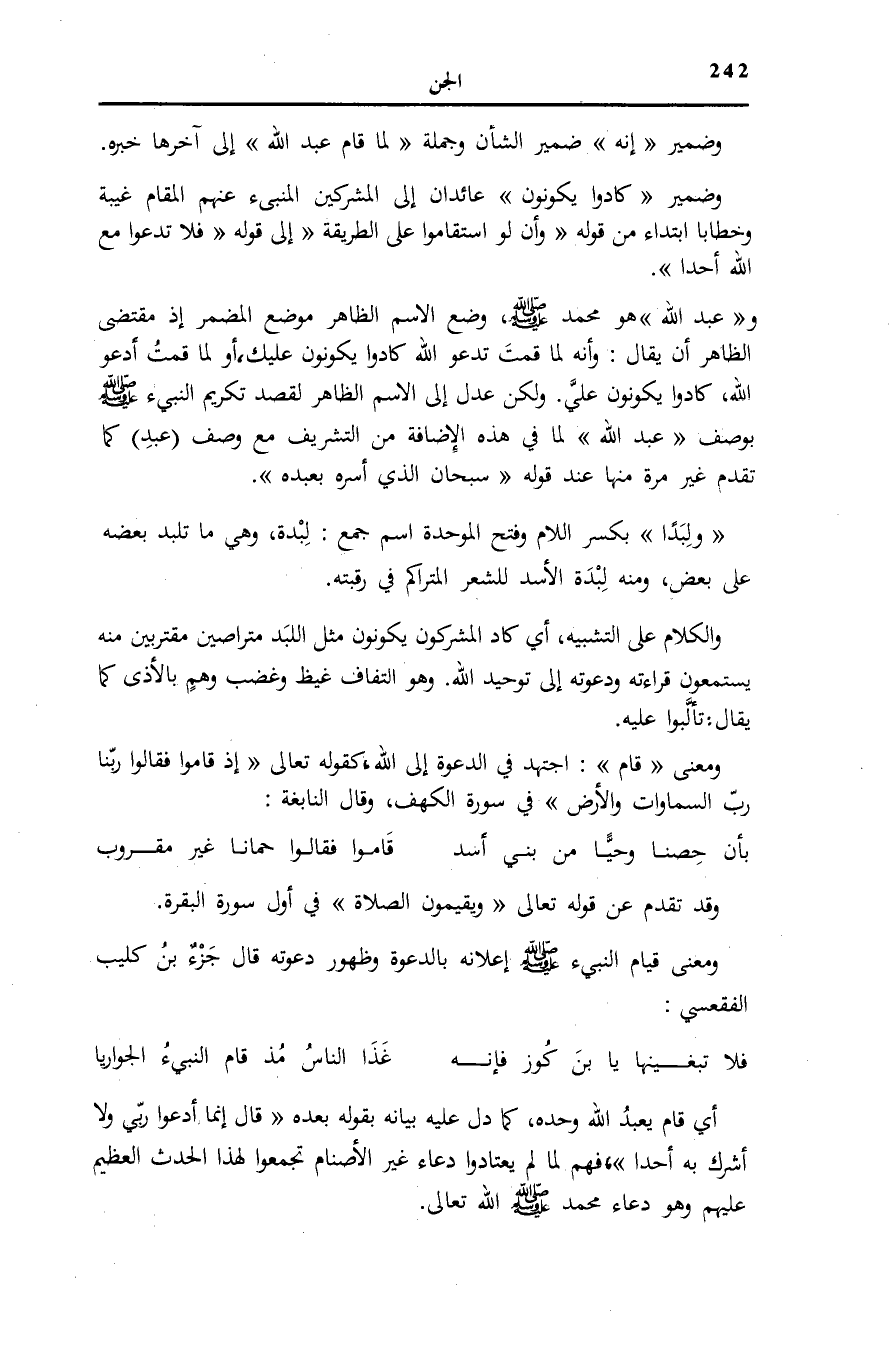 242
الجن
وضمير « إنه » ضمير الشأن وجملة « لما قام عبد الله » إلى آخرها خبره.
وضمير « كادوا يكونون » عائدان إلى المشركين المنبىء عنهم المقام غيبة
وخطابا ابتداء من قوله « وأن لو استقاموا على الطريقة « إلى قوله « فلا تدعوا مع
الله أحدا ».
و« عبد الله »هو محمد ﷺ، وضع الاسم الظاهر موضع المضمر إذ مقتضى
الظاهر أن يقال : وأنه لما قمتَ تدعو الله كادوا يكونون عليك،أو لما قمتُ أدعو
الله، كادوا يكونون عليَّ. ولكن عدل إلى الاسم الظاهر لقصد تكريم النبيء ﷺ
بوصف « عبد الله » لما في هذه الإضافة من التشريف مع وصف (عبدِ) كما
تقدم غير مرة منها عند قوله « سبحان الذي أسره بعبده ».
« ولِبَدًا » بكسر اللام وفتح الموحدة اسم جمع : لِبْدة، وهي ما تلبد بعضه
على بعض، ومنه لِبْدَة الأسد للشعر المتراكم في رقبته.
والكلام على التشبيه، أي كاد المشركون يكونون مثل اللبَد متراصين مقتربين منه
يستمعون قراءته ودعوته إلى توحيد الله. وهو التفاف غيظ وغضب وهمٍ بالأذى كما
يقال:تألَّبوا عليه.
ومعنى « قام » : اجتهد في الدعوة إلى الله،كقوله تعالى « إذ قاموا فقالوا ربّنا
ربّ السماوات والأرض » في سورة الكهف، وقال النابغة :
بأن حِصنـا وحيًّـا من بنـي أسد قَامـوا فقالـوا حمانـا غير مقـــروب
وقد تقدم عن قوله تعالى « ويقيمون الصلاة » في أول سورة البقرة.
ومعنى قيام النبيء ﷺ إعلانه بالدعوة وظهور دعوته قال جَزْءٌ بنُ كليب
الفقعسي :
فلا تبغـــينها يا بنَ كُوز فإنــــه غَذَا الناسُ مُذ قام النبيءُ الجواريا
أي قام يعبدُ الله وحده، كما دل عليه بيانه بقوله بعده « قال إنما أدعوا ربّي ولا
أشرك به أحدا »،فهم لما لم يعتادوا دعاء غير الأصنام تجمعوا لهذا الحدث العظيم
عليهم وهو دعاء محمد ﷺ الله تعالى.